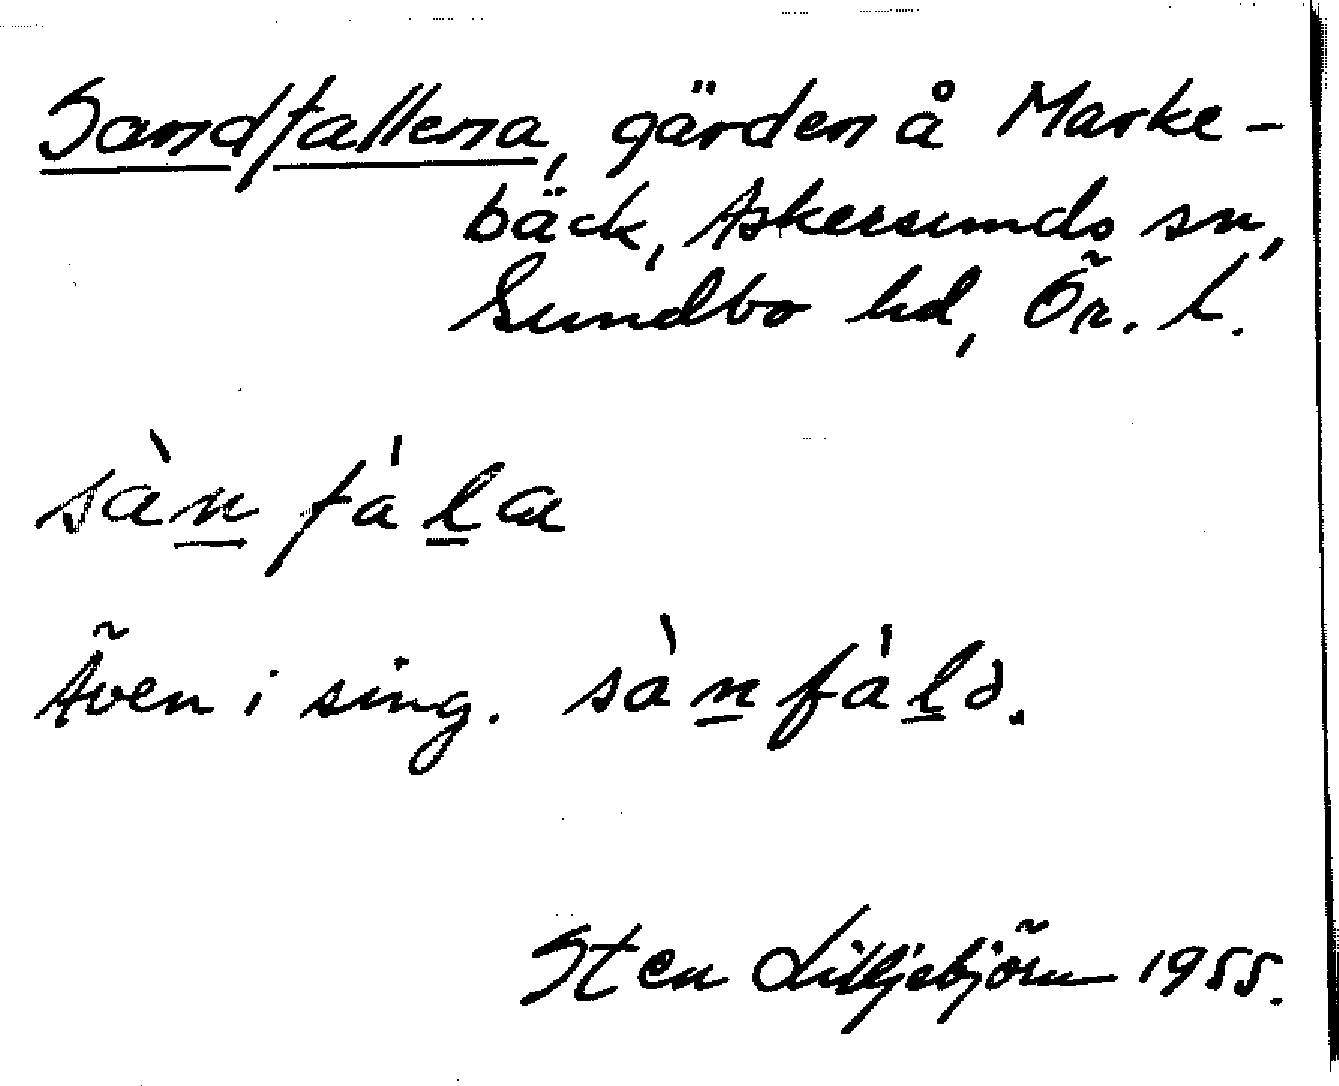 Sandfallena, gärden å Marke-
bäck, Askersunds sn,
Sundbo hd, Ör. L.
sàn fàla
Även i sing. sàn fàlə.
Sten Lilljebjörn 1955.